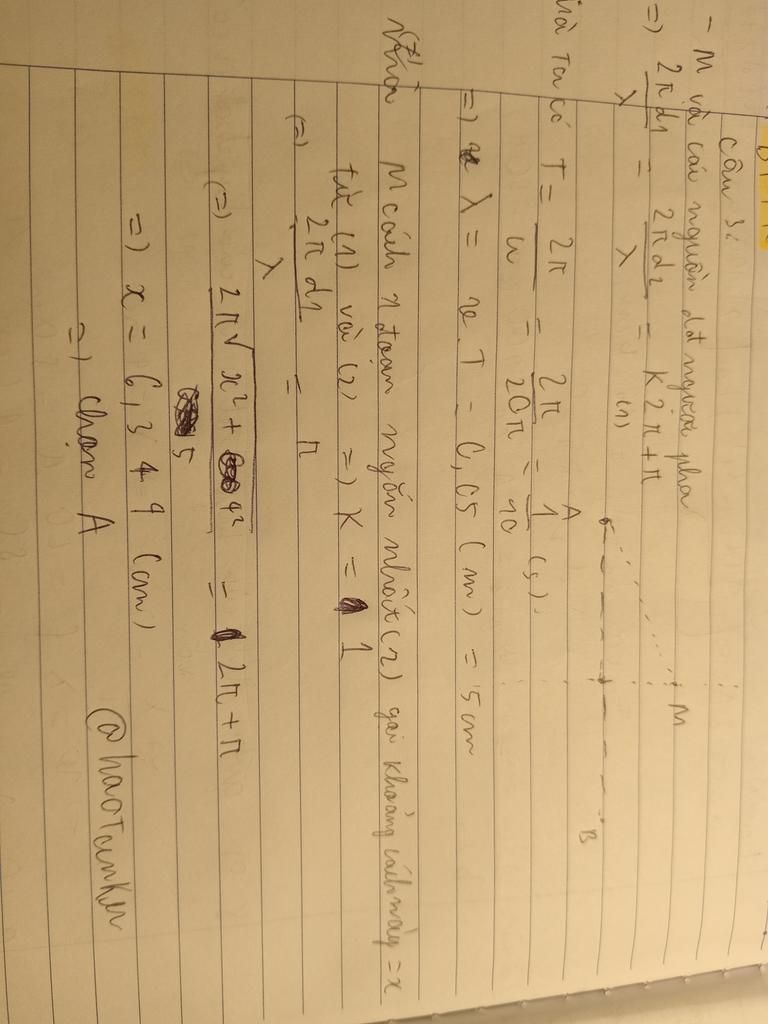 câu 3:
- M và cái nguồn dđ ngược pha
=) 2πd1/λ = 2πd2/λ = K2π+π (1)
M
A
B
mà Ta có T = 2π/ω = 2π/20π = 1/10 (s).
=) λ = v.T = 0,05 (m) = 5cm
M cách 1 đoạn ngắn nhất (2) gọi khoảng cách này = x
từ (1) và (2) =) K = 1
(=) 2πd1/λ = π
(=) 2π√x²+4²/5 = 2π+π
=) x = 6,349 (cm)
=) chọn A